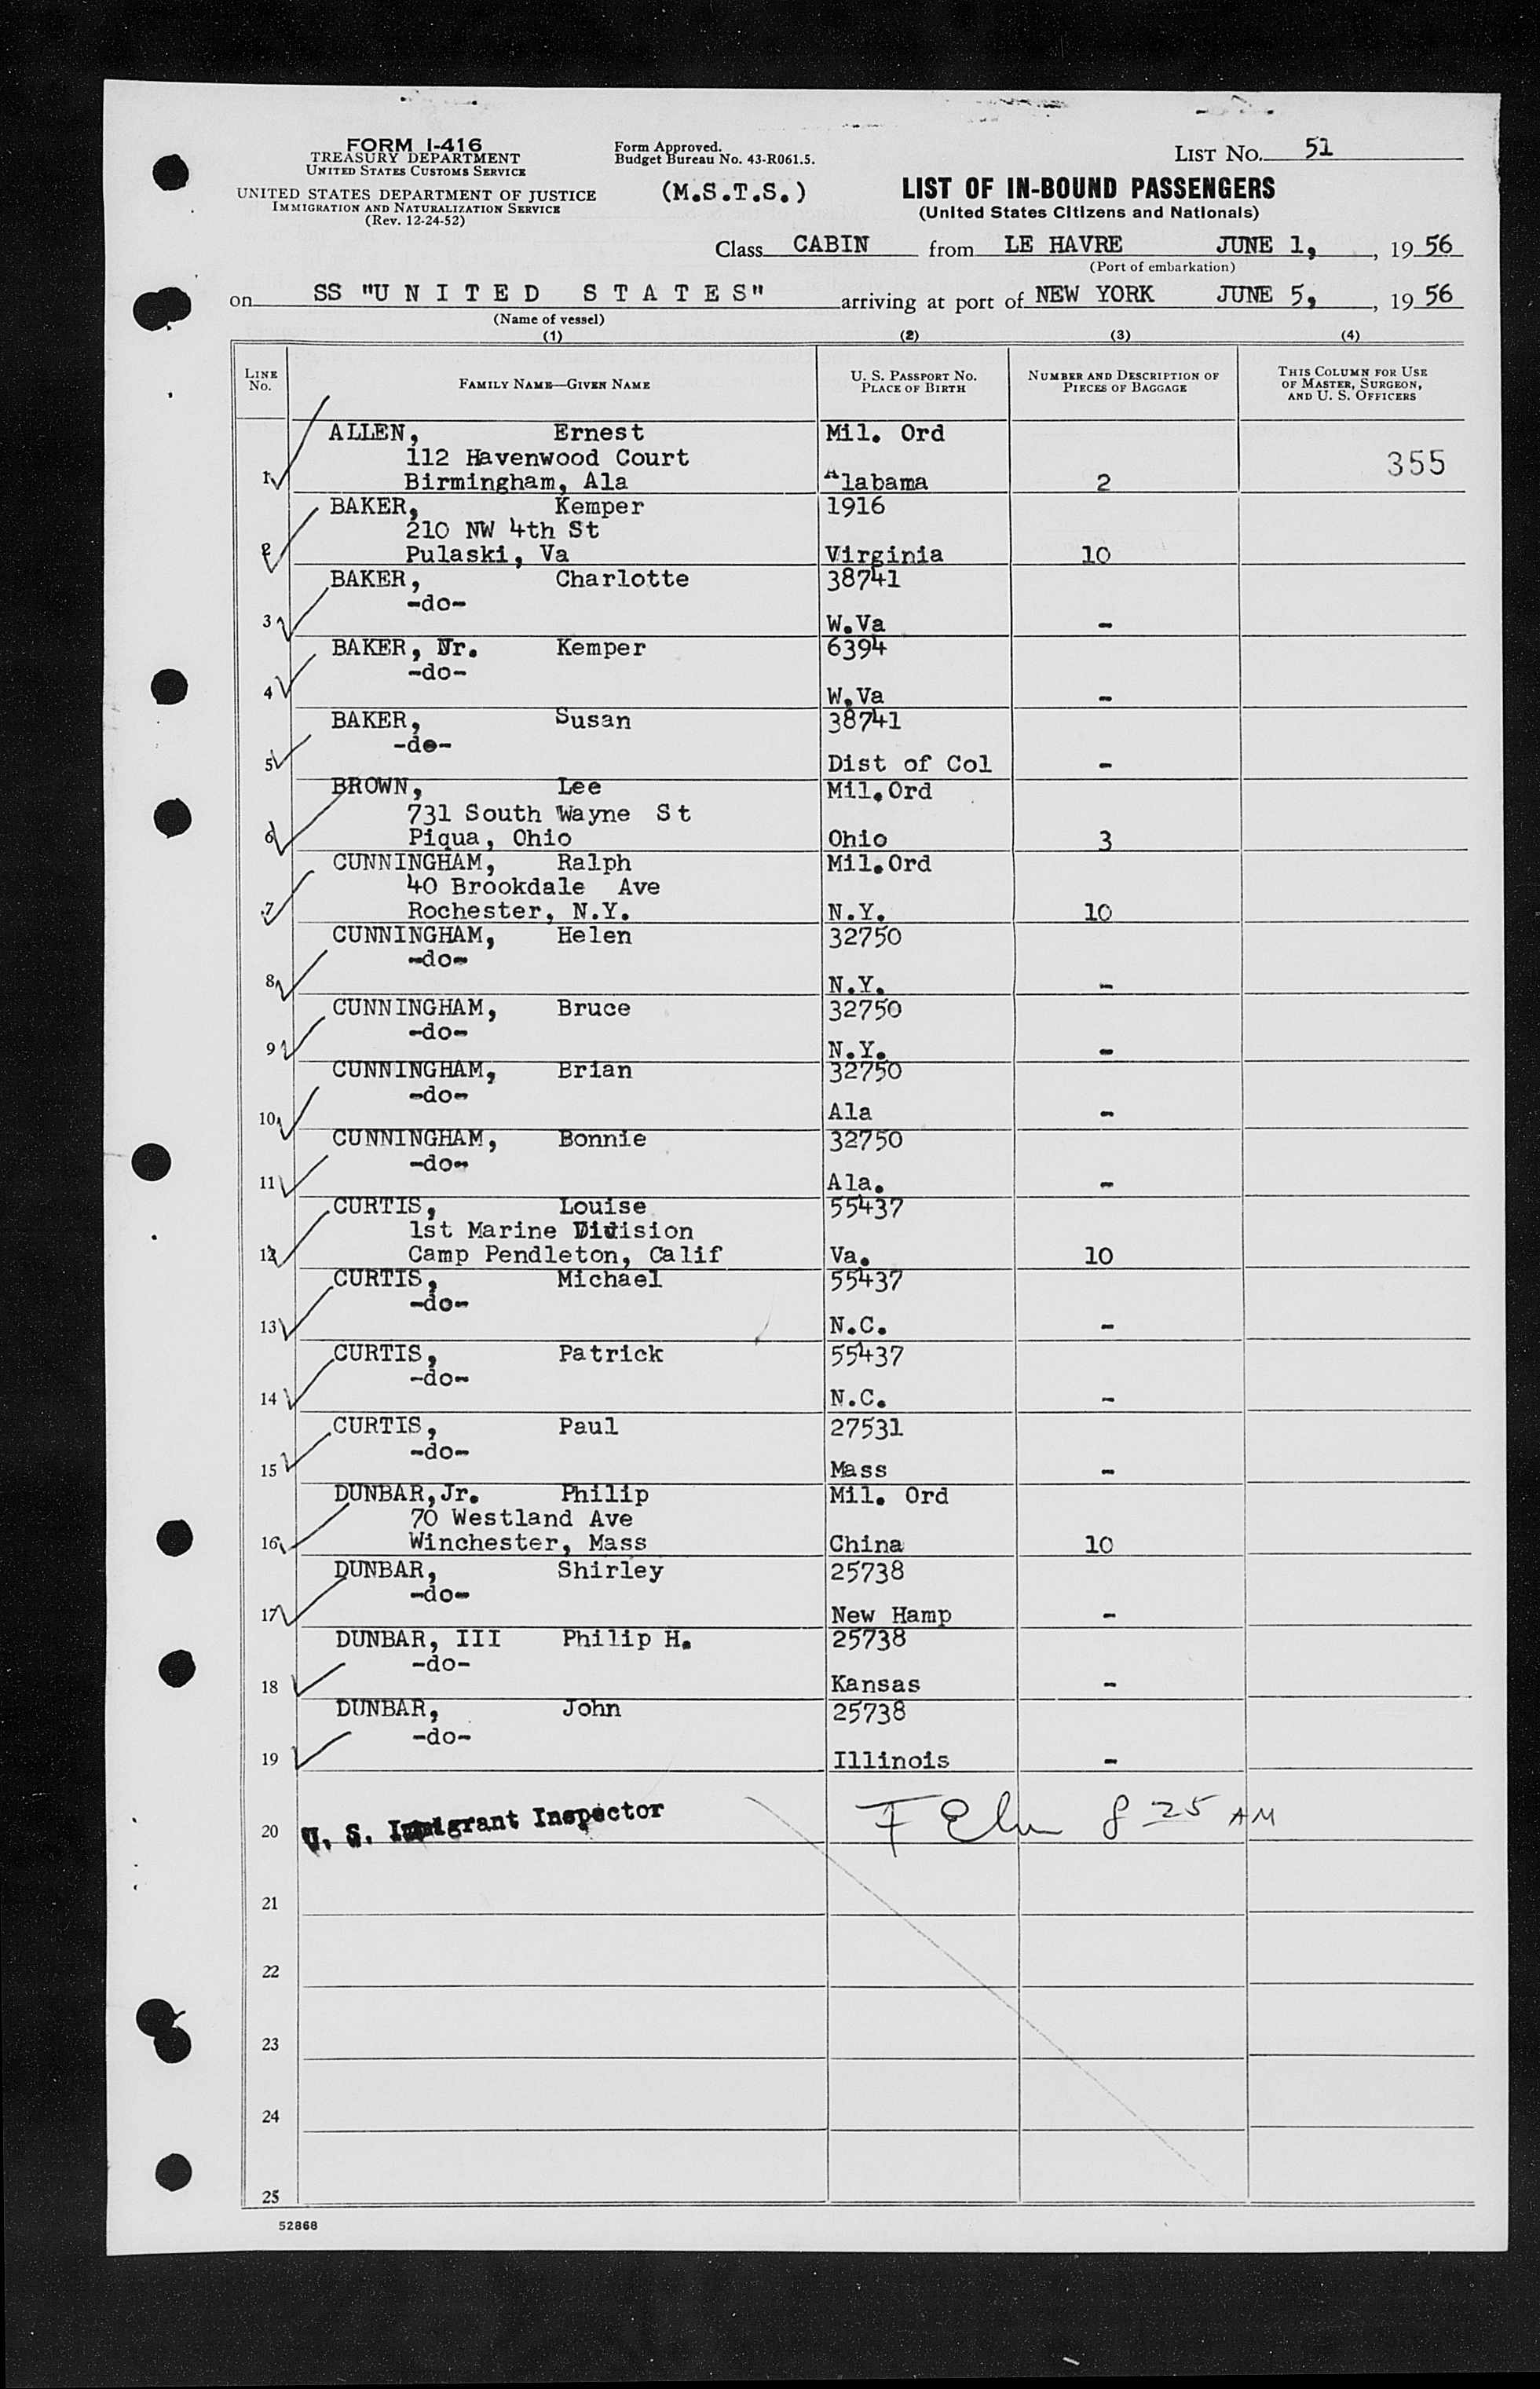 FORM I-416
TREASURY DEPARTMENT
UNITED STATES CUSTOMS SERVICE
UNITED STATES DEPARTMENT OF JUSTICE
IMMIGRATION AND NATURALIZATION SERVICE
(Rev. 12-24-52)
Form Approved.
Budget Bureau No. 43-R061.5.
(M.S.T.S.)
LIST NO. 51
LIST OF IN-BOUND PASSENGERS
(United States Citizens and Nationals)
Class CABIN from LE HAVRE JUNE 1, , 19 56
(Port of embarkation)
on SS "U N I T E D S T A T E S" arriving at port of NEW YORK JUNE 5, , 19 56
(Name of vessel)
(1) (2) (3) (4)
LINE NO. FAMILY NAME—GIVEN NAME U. S. PASSPORT NO. PLACE OF BIRTH NUMBER AND DESCRIPTION OF PIECES OF BAGGAGE THIS COLUMN FOR USE OF MASTER, SURGEON, AND U. S. OFFICERS
ALLEN, Ernest Mil. Ord
112 Havenwood Court 355
1 Birmingham, Ala Alabama 2
BAKER, Kemper 1916
210 NW 4th St
2 Pulaski, Va Virginia 10
BAKER, Charlotte 38741
-do-
3 W.Va -
BAKER, Jr. Kemper 6394
-do-
4 W.Va -
BAKER, Susan 38741
-do-
5 Dist of Col -
BROWN, Lee Mil.Ord
731 South Wayne St
6 Piqua, Ohio Ohio 3
CUNNINGHAM, Ralph Mil.Ord
40 Brookdale Ave
7 Rochester, N.Y. N.Y. 10
CUNNINGHAM, Helen 32750
-do-
8 N.Y. -
CUNNINGHAM, Bruce 32750
-do-
9 N.Y. -
CUNNINGHAM, Brian 32750
-do-
10 Ala -
CUNNINGHAM, Bonnie 32750
-do-
11 Ala. -
CURTIS, Louise 55437
1st Marine Division
12 Camp Pendleton, Calif Va. 10
CURTIS, Michael 55437
-do-
13 N.C. -
CURTIS, Patrick 55437
-do-
14 N.C. -
CURTIS, Paul 27531
-do-
15 Mass -
DUNBAR, Jr. Philip Mil. Ord
70 Westland Ave
16 Winchester, Mass China 10
DUNBAR, Shirley 25738
-do-
17 New Hamp -
DUNBAR, III Philip H. 25738
-do-
18 Kansas -
DUNBAR, John 25738
-do-
19 Illinois -
20 U. S. Immigrant Inspector 8 25 AM
21
22
23
24
25
52868